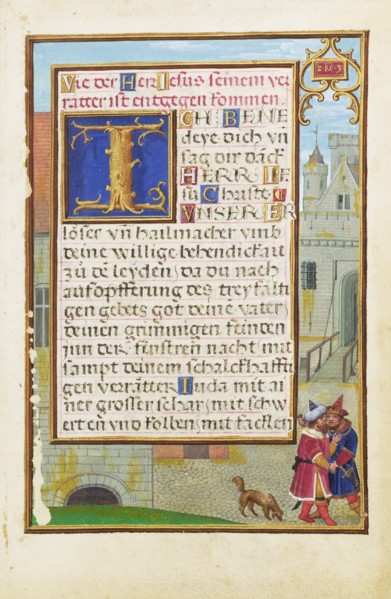 Vie der Herr Iesus seinem ver
rätter ist entgegen kommen.
ICH BENE
deye dich vn̄
sag dir dāck
HERR IE
su Christe
VNSER ER
löser vn̄ hailmacher vmb
deine willige behendickait
zů dē leyden, da du nach
aufopfferung des treyfalti
gen gebets got deinē vater
deinen grimmigen feinden
inn der finstren nacht mit
sampt deinem schalckhaffti
gen verrätter Iuda mit ai
ner grosser schar, mit schw
erten vnd kolben, mit facklen